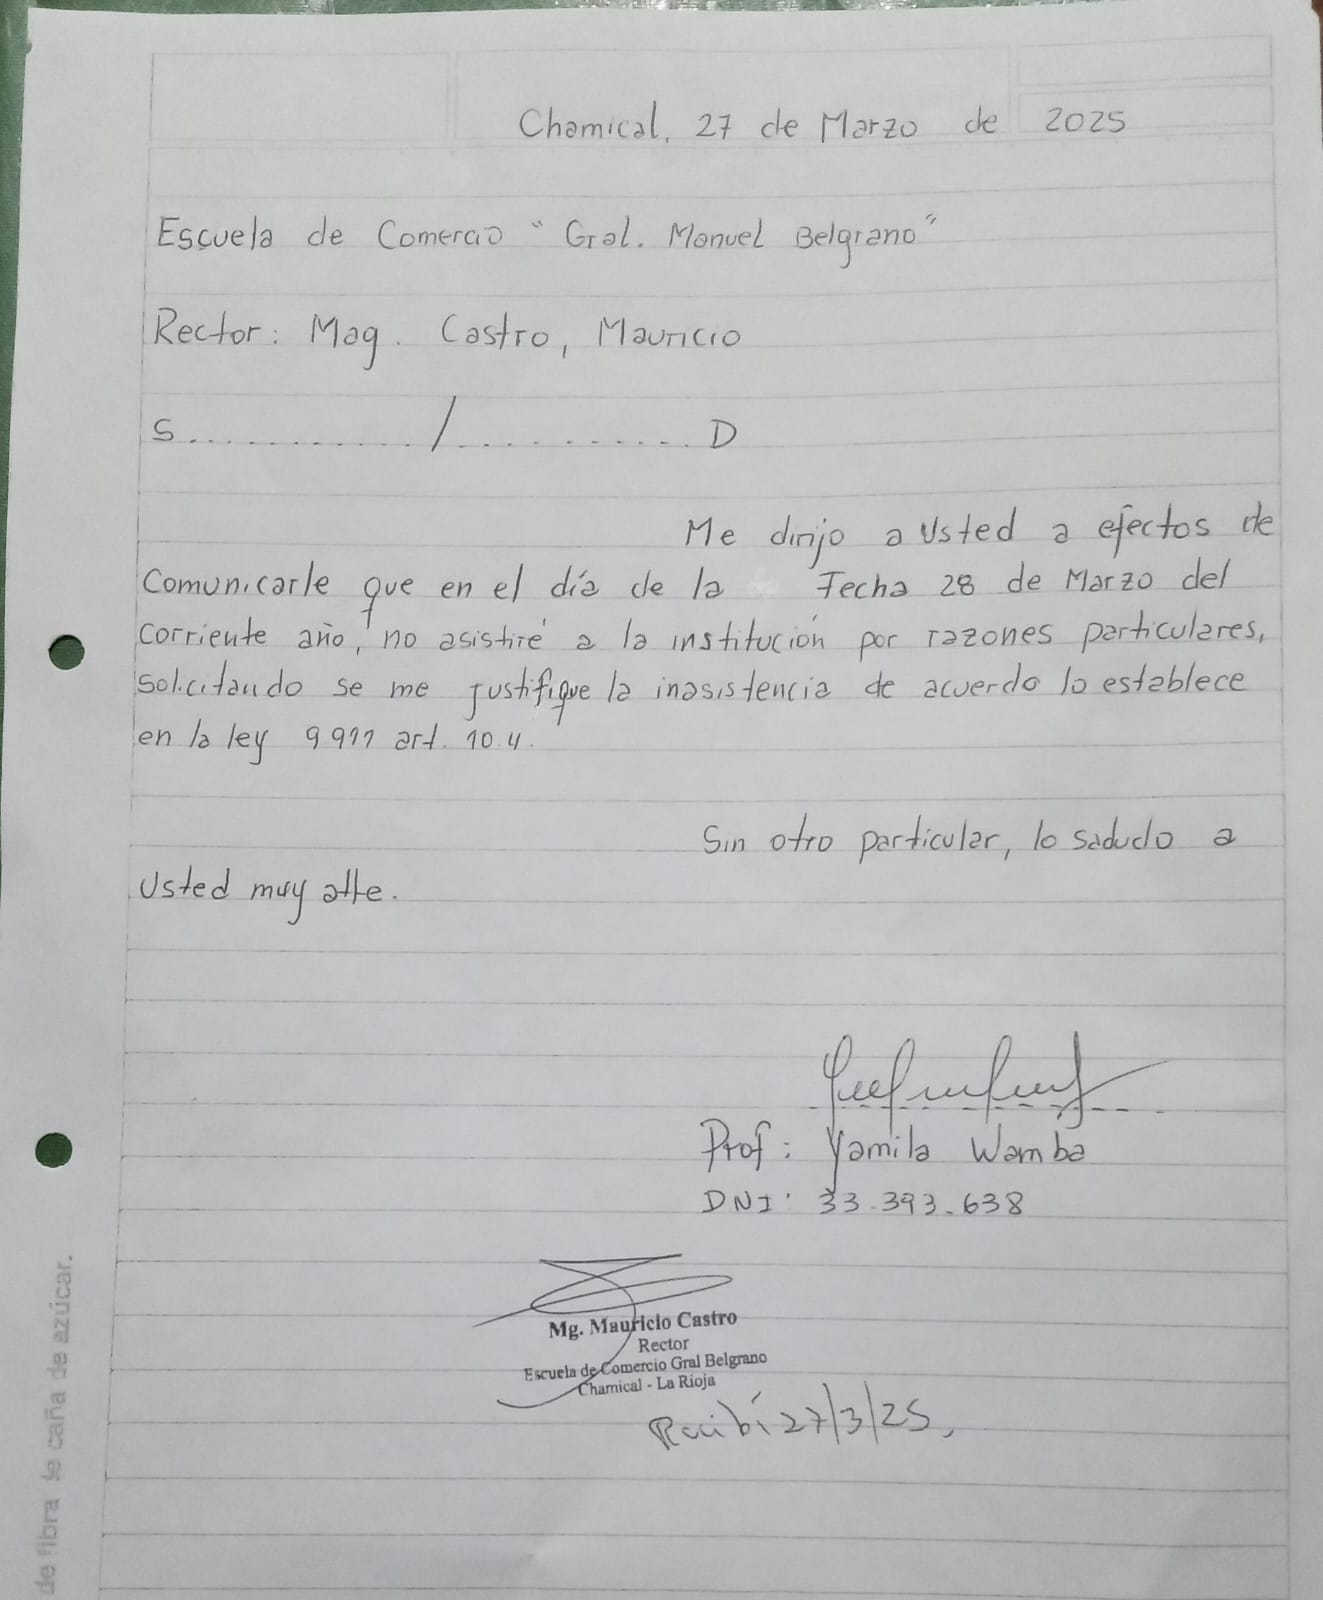 Chamical, 27 de Marzo de 2025
Escuela de Comercio "Gral. Manuel Belgrano"
Rector: Mag. Castro, Mauricio
S.........../..........D
Me dirijo a Usted a efectos de
Comunicarle que en el día de la Fecha 28 de Marzo del
corriente año, no asistiré a la institución por razones particulares,
solicitando se me justifique la inasistencia de acuerdo lo establece
en la ley 9911 art. 10.4.
Sin otro particular, lo saludo a
Usted muy atte.
Prof: Yamila Wamba
DNI: 33.393.638
Mg. Mauricio Castro
Rector
Escuela de Comercio Gral Belgrano
Chamical - La Rioja
Recibí 27/3/25,
de fibra de caña de azúcar.